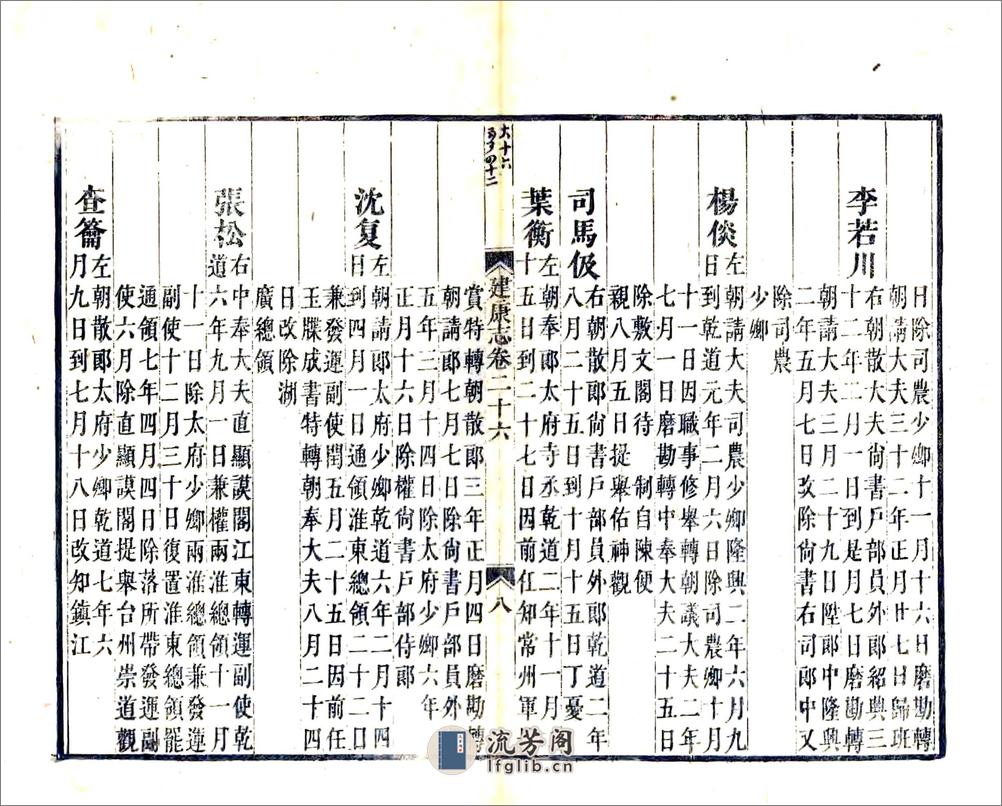 日除司農少卿十一月十六日磨勘轉
朝請大夫三十二年正月廿七日歸班
李若川右朝散大夫尚書戶部員外郎紹興三
十二年二月一日到是月七日磨勘轉
朝請大夫三月二十九日陞郎中隆興
二年五月七日改除尚書右司郎中又
除司農
少卿
楊倓左朝請大夫司農少卿隆興二年六月九
日到乾道元年二月六日除司農卿十月
十一日因職事修舉轉朝議大夫二年
七月一日磨勘轉中奉大夫二十五日
除敷文閣待制自陳便
親八月五日提舉佑神觀
司馬伋右朝散郎尚書戶部員外郎乾道二年
八月二十五日到十月十五日丁憂
葉衡左朝奉郎太府寺丞乾道二年十一月
十五日到二十七日因前任知常州軍
大十六
小ク四十二
建康志卷二十六
八
賞特轉朝散郎三年正月四日磨勘轉
朝請郎七月七日除尚書戶部員外
五年三月十四日除太府少卿六年
正月十六日除權尚書戶部侍郎
沈复左朝請郎太府少卿乾道六年二月十四
日到四月一日通領淮東總領二十二日
兼發運副使閏五月二十五日因前任
玉牒成書特轉朝奉大夫八月二十四
日改除湖
廣總領
張松右中奉大夫直顯謨閣江東轉運副使乾
道六年九月一日兼權兩淮總領十一月
十一日除太府少卿兩淮總領兼發運
副使十二月三十日復置淮東總領罷
通領七年四月四日除落所帶發運副
使六月除直顯謨閣提舉台州崇道觀
查籥左朝散郎太府少卿乾道七年六
月九日到七月十八日改知鎮江
流芳阁
lfglib.cn